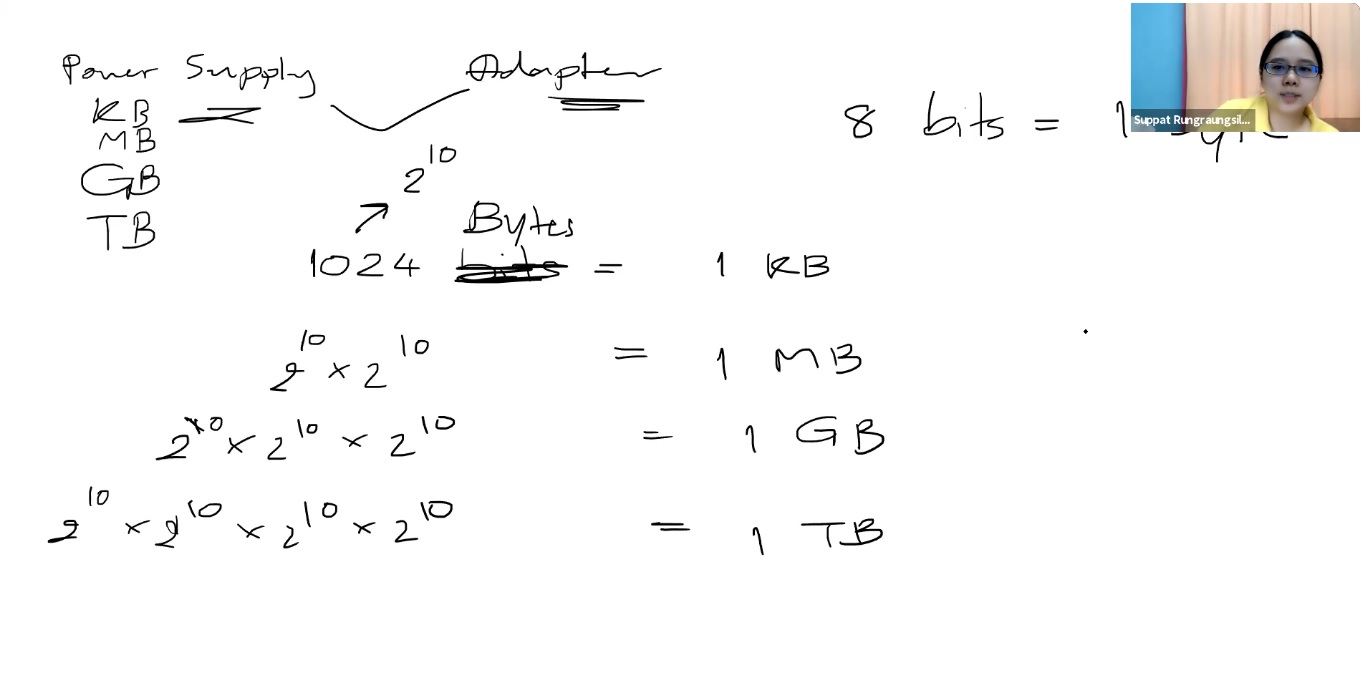 Power Supply Adapter
KB
MB
GB
TB
8 bits = 1
Suppat Rungraungsil...
2^10
Bytes
1024 bits = 1 KB
2^10 × 2^10 = 1 MB
2^10 × 2^10 × 2^10 = 1 GB
2^10 × 2^10 × 2^10 × 2^10 = 1 TB